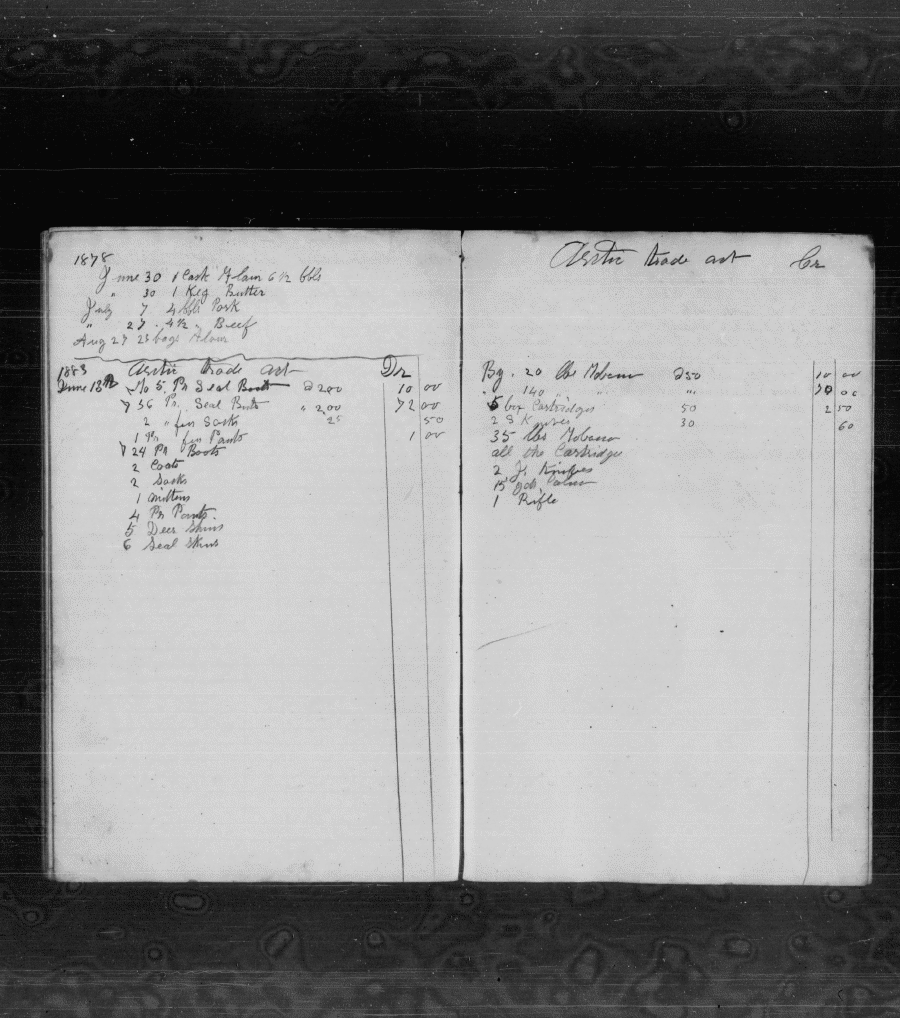 1878
June 30 1 Cask Flour 6 1/2 bbls
" 30 1 Keg Butter
July 7 4 bbls Pork
" 27 . 4 1/2 " Beef
Aug 27 25 bags Flour
1883 Arctic trade act Dr
June 13th To 5 Pr Seal Boots @ 2.00 10 00
" 36 Pr. Seal Boots " 2,00 72 00
2 " fur Socks 25 50
1 Pr fur Pants 1 00
24 Pr Boots
2 Coats
2 Socks
1 mittens
4 Pr Pants.
5 Deer Skins
6 Seal Skins
Arctic trade act Cr
By . 20 lbs Tobacco @50 10 00
" 140 " " "" 70 00
5 box Cartridges 50 2 50
2 S Knives 30 60
35 lbs Tobacco
all the Cartridges
2 J. Knifes
15 yds
1 Rifle